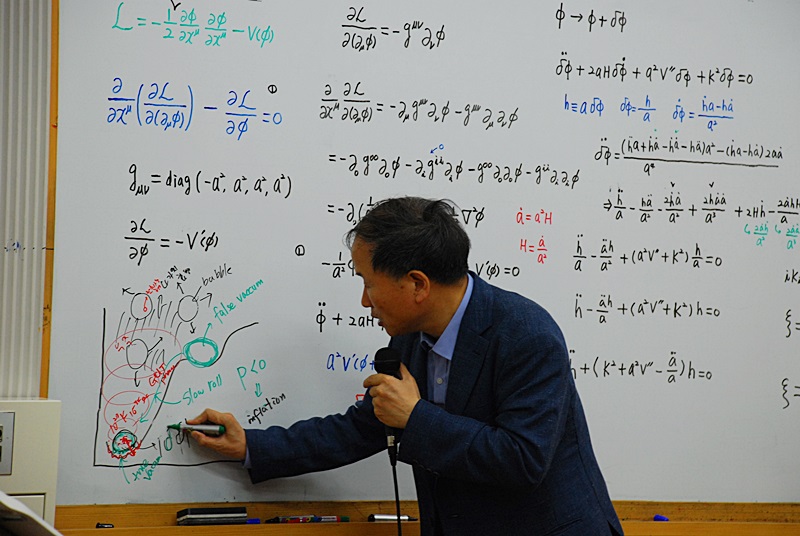 L = -1/2 ∂ϕ/∂x^μ ∂ϕ/∂x^μ - V(ϕ)
∂/∂x^μ (∂L/∂(∂_μϕ)) - ∂L/∂ϕ = 0 ①
g_μν = diag(-a², a², a², a²)
∂L/∂ϕ = -V'(ϕ)
bubble
false vacuum
slow roll
P<0
⇓
inflation
vacuum
∂L/∂(∂_μϕ) = -g^μν ∂_νϕ
∂/∂x^μ ∂L/∂(∂_μϕ) = -∂_μ g^μν ∂_νϕ - g^μν ∂_μ ∂_νϕ
= -∂₀g⁰⁰∂₀ϕ - ∂_i g^ii ∂_iϕ - g⁰⁰∂₀∂₀ϕ - g^ii ∂_i∂_iϕ
0
= -∂₀( ∇²ϕ
ȧ = a²H
H = ȧ/a²
① -1/a² V'(ϕ) = 0
ϕ̈ + 2aH
a²V'(ϕ
ϕ → ϕ + δϕ
δϕ̈ + 2aHδϕ̇ + a²V''δϕ + K²δϕ = 0
h ≡ aδϕ δϕ = h/a δϕ̇ = (ḣa - hȧ)/a²
δϕ̈ = ((ḧa + ḣȧ - ḣȧ - hä)a² - (ḣa - hȧ)2aȧ)/a⁴
⇒ ḧ/a - hä/a² - 2ḣȧ/a² + 2hȧȧ/a³ + 2Hḣ - 2ȧhH
2ȧḣ/a²
ḧ/a - äh/a² + (a²V'' + K²)h/a = 0
ḧ - äh/a + (a²V'' + K²)h = 0
ḧ + (K² + a²V'' - ä/a)h = 0